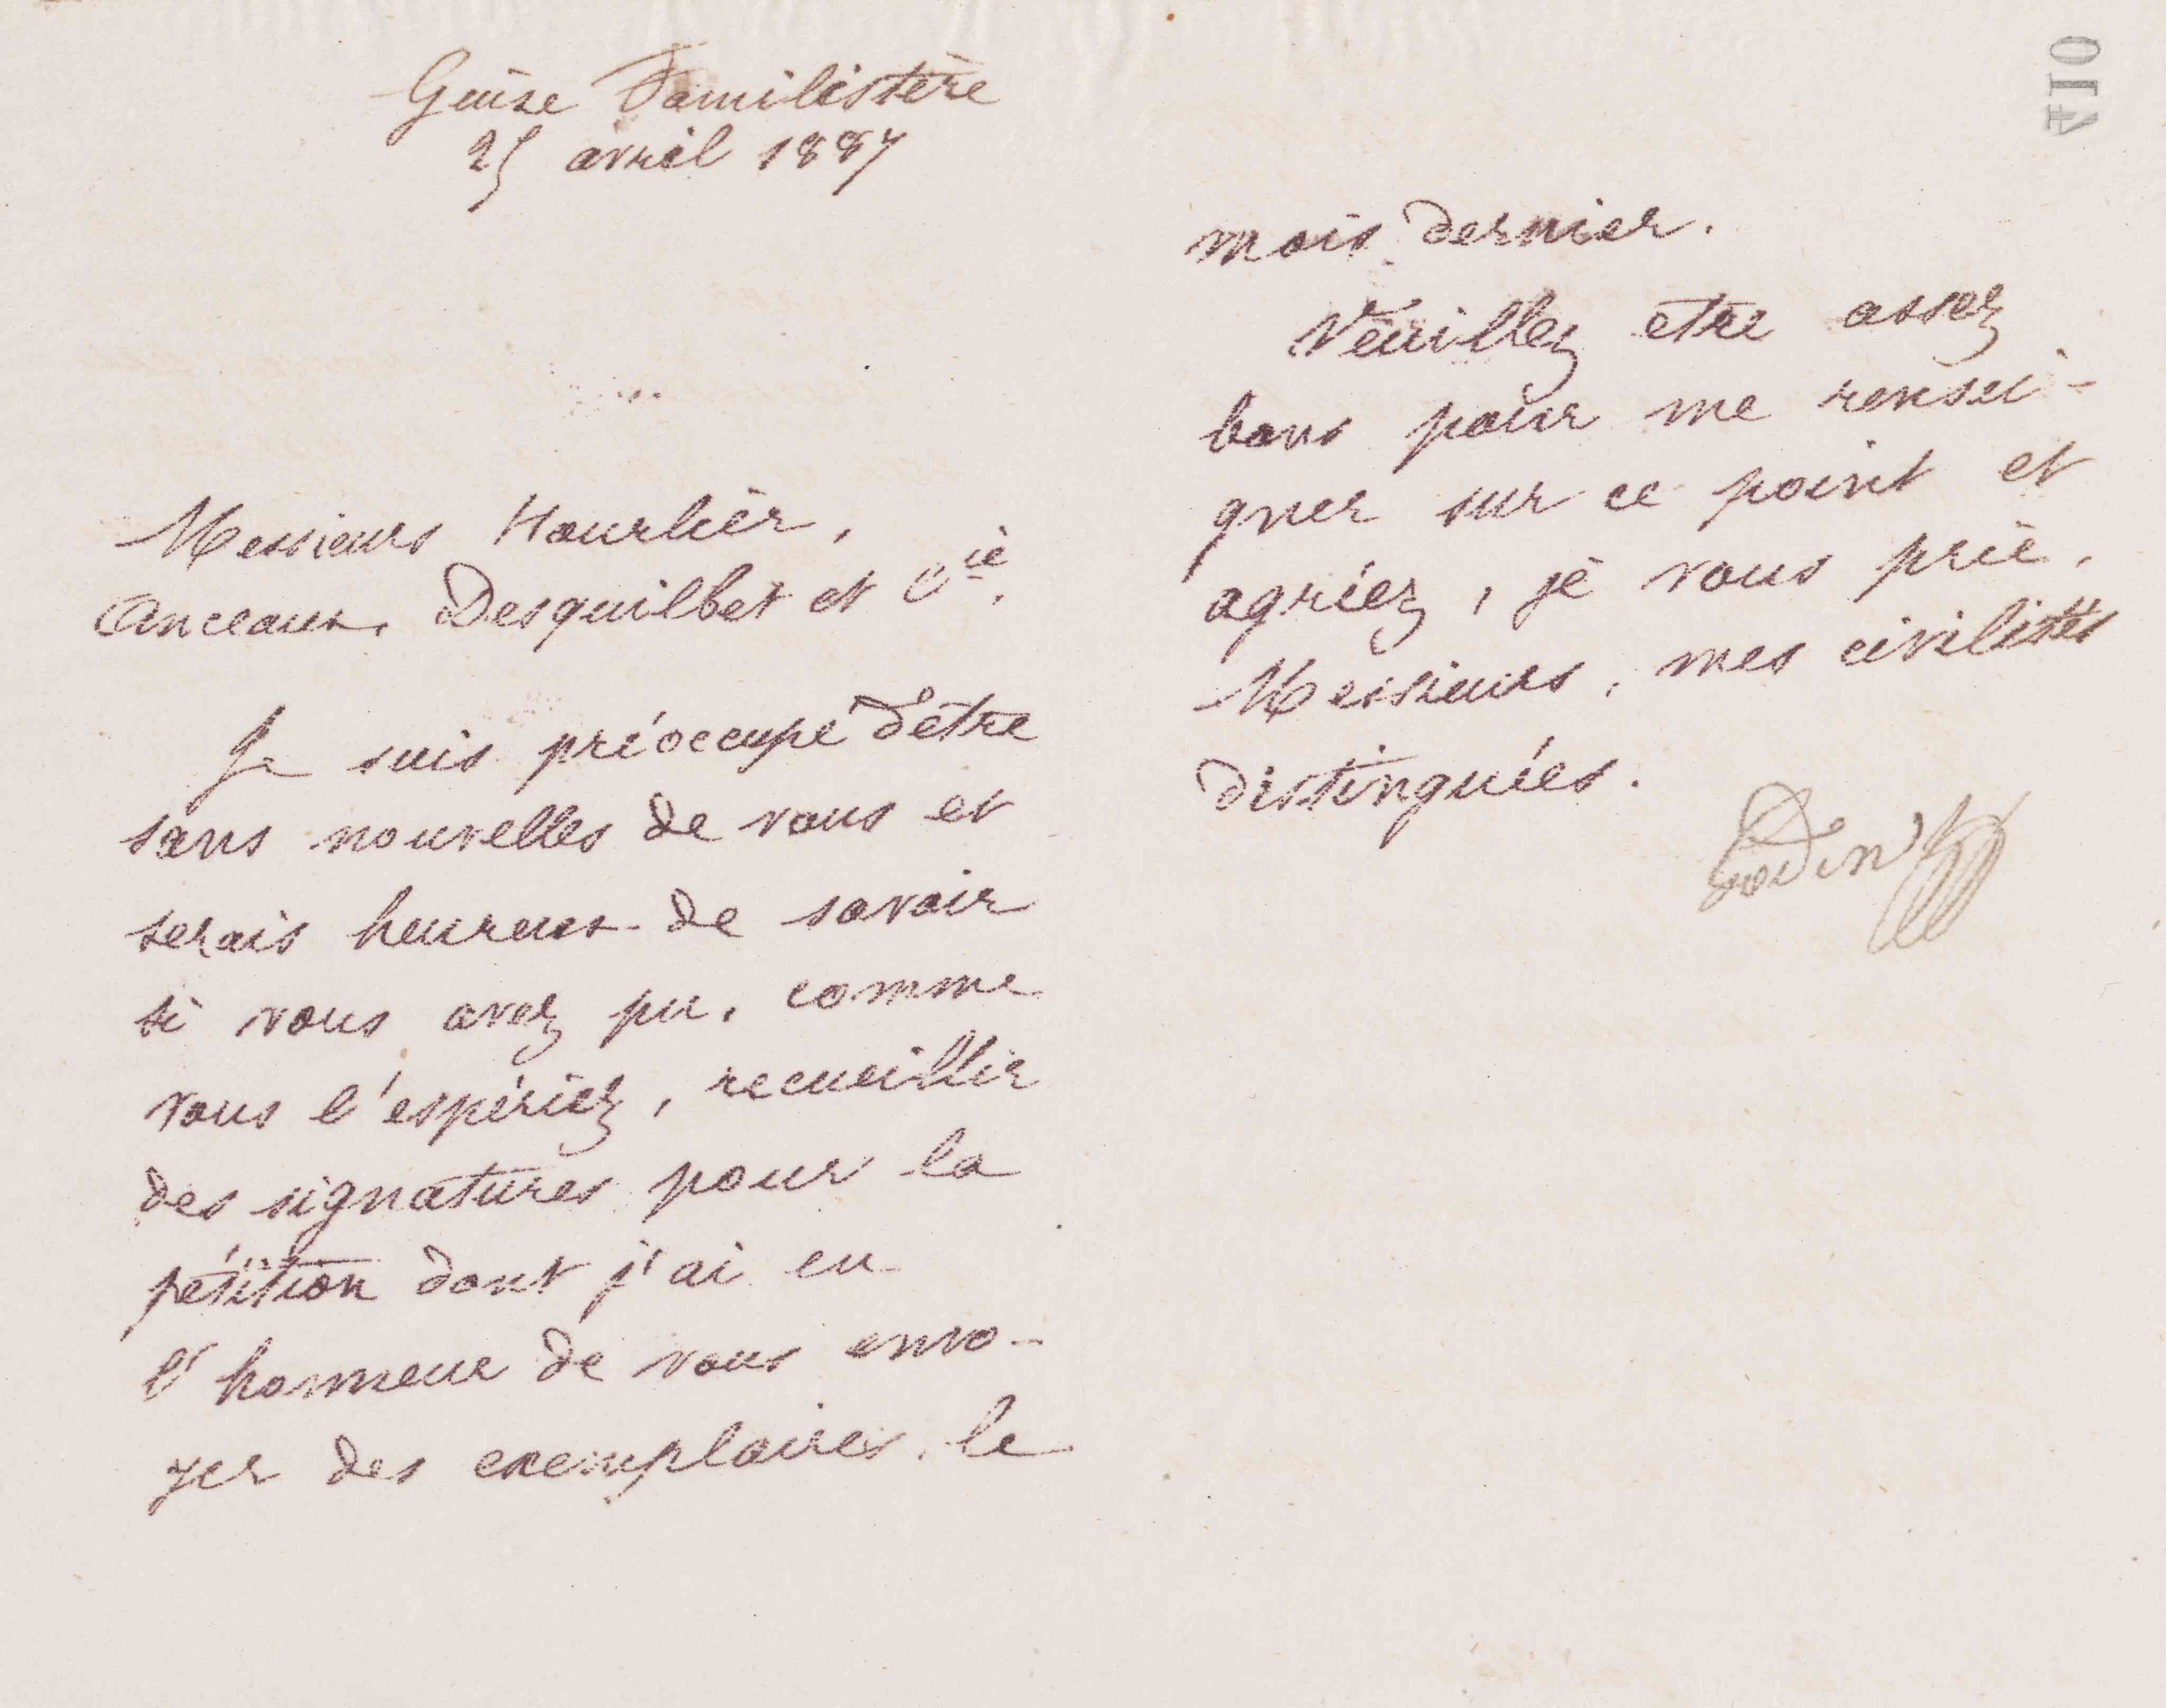 Guise Familistère
25 avril 1887
Messieurs Hourlier,
Anceaux, Desquilbet et Cie,
Je suis préoccupé d'être
sans nouvelles de vous et
serais heureux de savoir
si vous avez pu, comme
vous l'espériez, recueillir
des signatures pour la
pétition dont j'ai eu
l'honneur de vous envo-
yer des exemplaires, le
410
mois dernier.
Veuillez etre assez
bons pour me rensei-
gner sur ce point et
agréez, je vous prie,
Messieurs, mes civilités
distinguées.
Godin